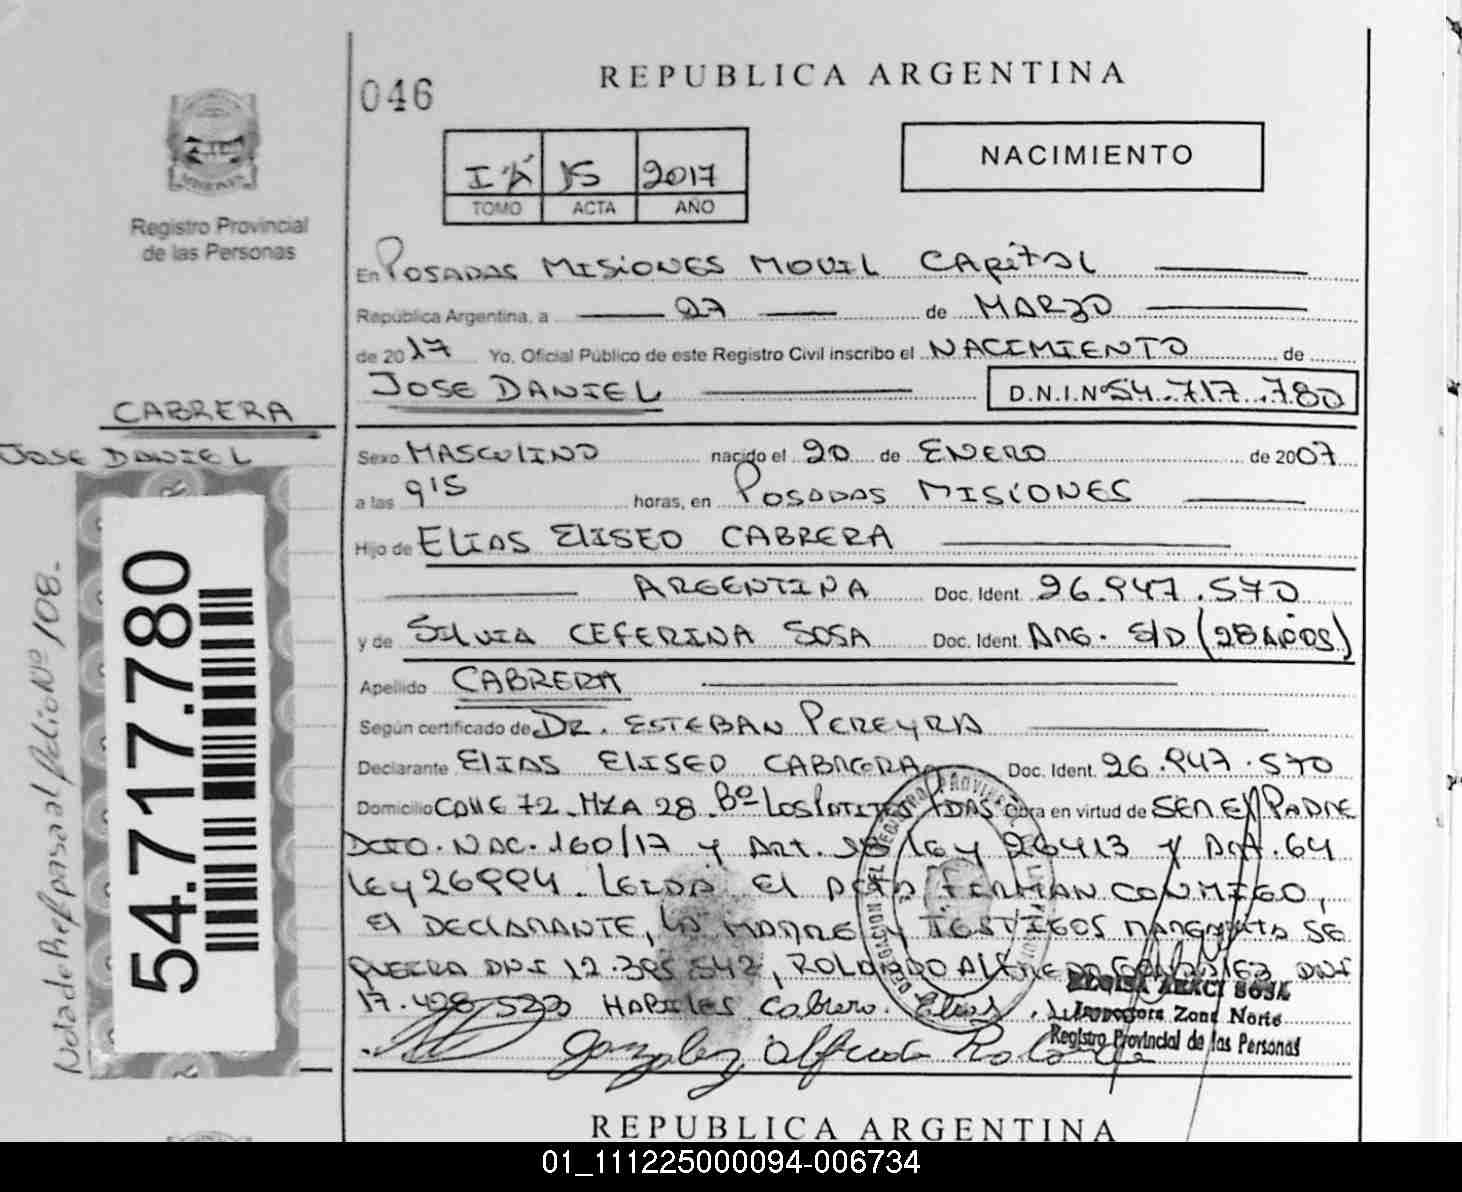 046
REPUBLICA ARGENTINA
NACIMIENTO
15 2017
TOMO ACTA AÑO
MISIONES
Registro Provincial
de las Personas
En POSADAS MISIONES MOVIL CAPITAL
República Argentina, a 27 de MARZO
de 2017 Yo, Oficial Público de este Registro Civil inscribo el NACIMIENTO de
JOSE DANIEL D.N.I.Nº 54.717.780
CABRERA
JOSE DANIEL
Sexo MASCULINO nacido el 20 de ENERO de 2007
a las 9'15 horas, en POSADAS MISIONES
Hijo de ELIAS ELISEO CABRERA
ARGENTINA Doc. Ident. 26.947.570
y de SILVIA CEFERINA SOSA Doc. Ident. ARG. S/D (28 AÑOS)
Apellido CABRERA
Según certificado de DR. ESTEBAN PEREYRA
Declarante ELIAS ELISEO CABRERA Doc. Ident. 26.947.570
Domicilio CALLE 72 - MZA 28 - Bº Los Obra en virtud de SER EL PADRE
DCTO. NAC. 160/17 y Art. ley 26413 y Art. 64
ley 26994. LEIDA El ACTA FIRMAN CONMIGO,
El DECLARANTE, LA MADRE y TESTIGOS MARGARITA SE
QUEIRA DNI 12.395.542, ROLANDO ALFREDO GONZALEZ DNI
17.428.533 HABILES Cabrera Elias
ELOISA ARACI SOSA
Inspectora Zona Norte
Registro Provincial de las Personas
Gonzalez Alfredo Rolando
54.717.780
Nota de Ref. pasa al folio Nº 108.
REPUBLICA ARGENTINA
01_111225000094-006734